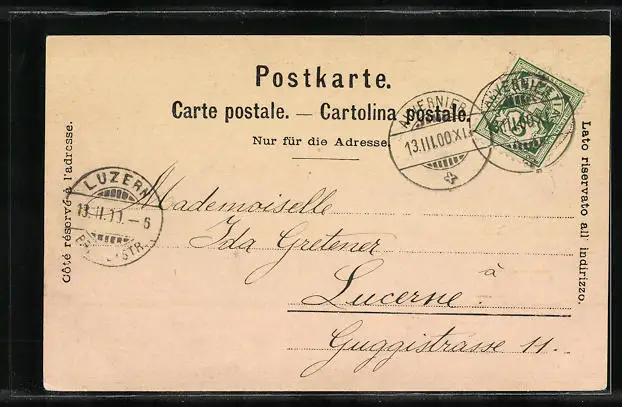 Postkarte.
Carte postale. — Cartolina postale.
Nur für die Adresse.
Côté réservé à l'adresse.
Lato riservato all indirizzo.
AUVERNIER
13.III.00 XI
LUZERN
Mademoiselle
Ida Gretener
à
Lucerne.
Guggistrasse 11.